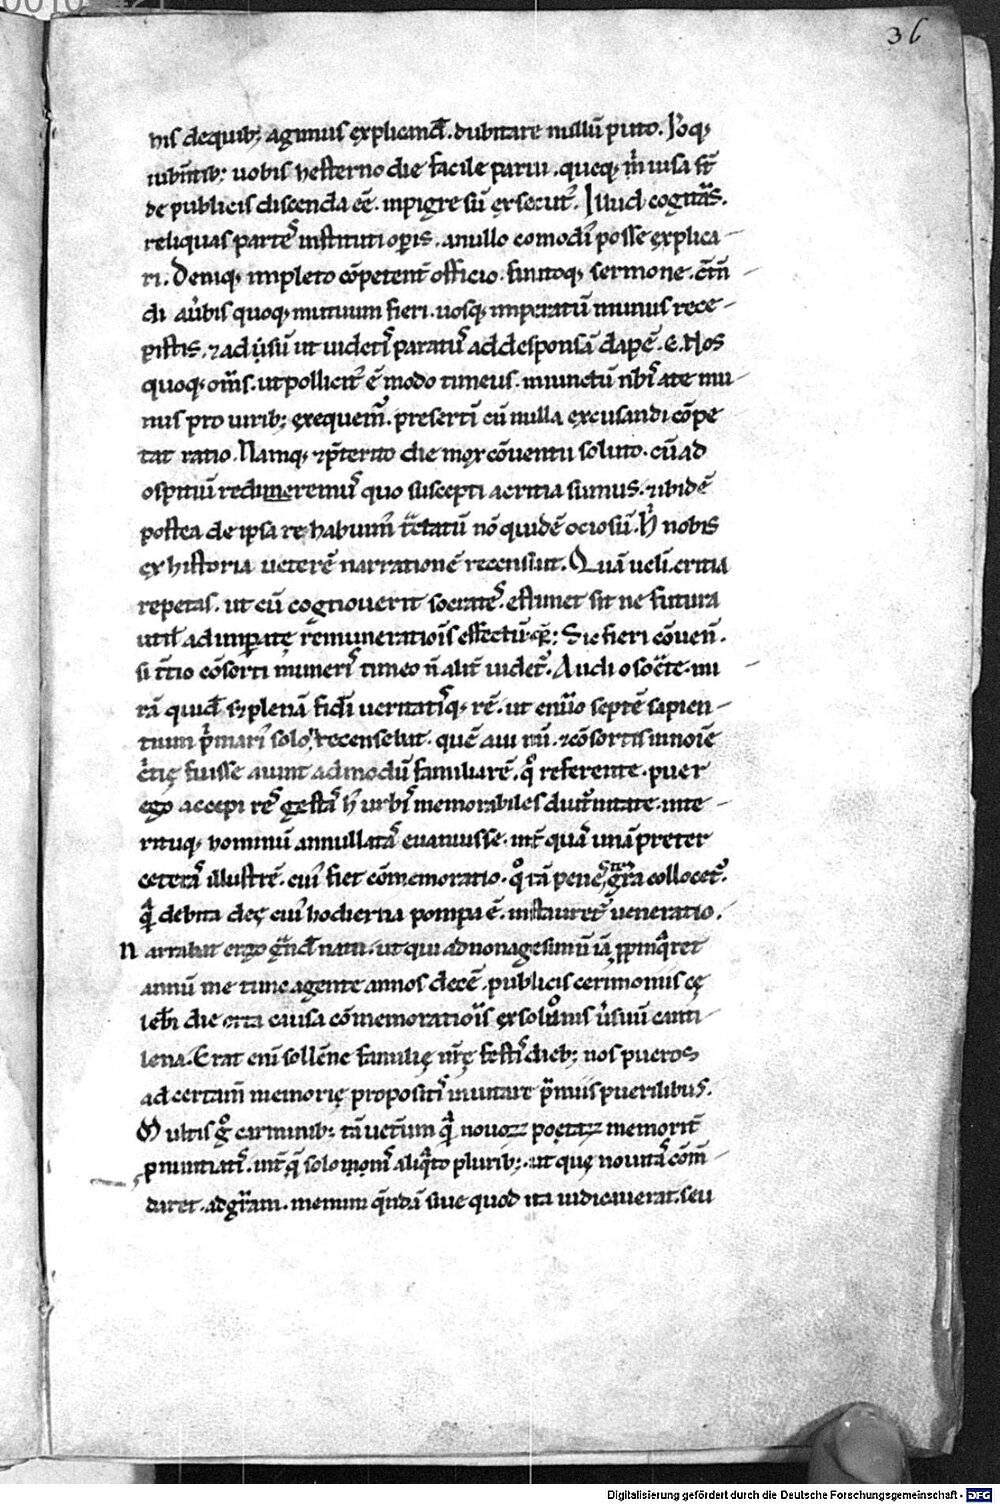 36
his dequib; agimus explicand̄. dubitare nullū puto. Ioq;
iubētib; uobis hesterno die facile parui. queq; m̄ uisa st̄
de publicis discenda eē. inpigre sū exsecut᷒. Illud cogitās.
reliquas partes instituti opis. a nullo comodi᷒ posse explica
ri. Deniq; impleto cōpetent̄ officio. finitoq; sermone. c̄tn̄
di au᷒bis quoq; mutuum fieri. uosq; imperatū munus rece
pistis. ⁊ ad usū ut uidetis paratus ad desponsā dapē. E. Nos
quoq; om̄s. ut pollicit᷒ ē modo timeus. iniunctū nob̄ a te mu
nus pro uirib; exequem̄. presertī cū nulla excusandi cōpe
tat ratio. Namq; ⁊ p̄terito die mox cōuentu soluto. cū ad
ospitiū rediremus quo suscepti a critia sumus. ⁊ ibidē
postea de ipsa re habuim̄ t̄ctatū nō quidē ociosū. H̄ nobis
ex historia ueterē narrationē recensuit. Quā ueli᷒ critia
repetas. ut cū cognouerit socrates. estimet sit ne futura
util᷒ ad imperate remuneratiois effectū. c̄r; Sic fieri cōuen̄.
si t̄tio cōsorti muneris timeo n̄ alit̄ uidet᷒. Audi o soc̄te. mi
rā quid̄ sz plenā fidi ueritatisq; rē. ut enī septē sapien
tium p̄mari᷒ solo recensebat. quē aui mī. ⁊ cōsortis in noīe
c̄tie fuisse aiunt admodū familiarē. q̊ referente. puer
ego accepi res gestas h᷒ urbis memorabiles diut̄nitate. inte
rituq; hominū annullatas euanuisse. int̄ quas unā preter
ceteras illustrē. cui᷒ fiet cōmemoratio. q̊ tā penes gr̄a collocet᷒.
q̄ debita dee cui᷒ hodierna pompa ē. instauret᷒ ueneratio.
Narrabat ergo gn̄d natu. ut qui ad nonagesimū iā ppinq̄ret
annū me tunc agente annos decē. publicis cerimoniis ce
lebri die cuisa cōmemoratiois exsolu᷒s u᷒suū canti
lena. Erat enī sollēne familie nr̄e festis dieb; nos pueros
ad certam̄ memorie propositis inuitare p̄miis puerilibus.
Multis g̊ carminib; tā uet̄um q̄ nouoꝝ poetaꝝ memorit̄
pnuntiatis. int̄ q̄ solonis aliq̄to plurib;. ut que nouitas cōm̄
daret. ad gr̄am. memini q̄ndā siue quod ita iudicauerat. seu
Digitalisierung gefördert durch die Deutsche Forschungsgemeinschaft - DFG